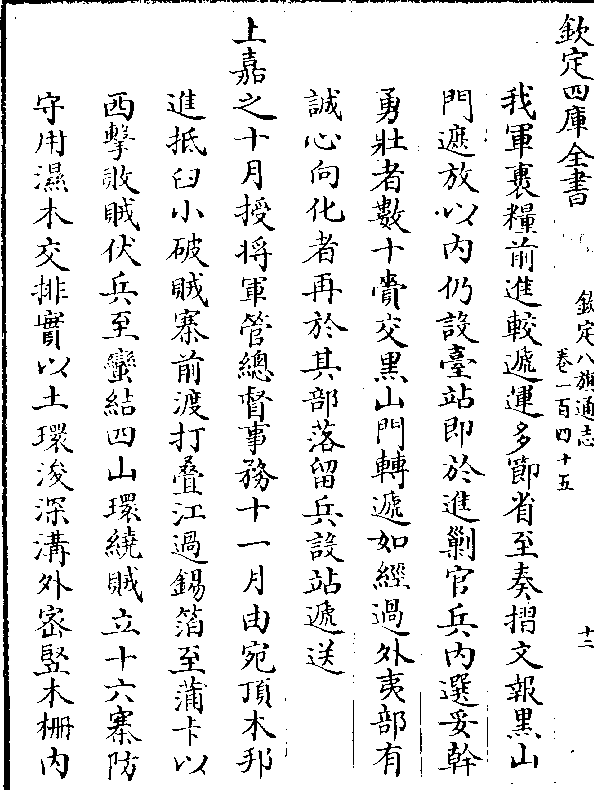 欽定四庫全書
欽定八旗通志
卷一百四十五
十二
我軍裹糧前進較遞運多節省至奏摺文報黑山
門遮放以内仍設臺站即於進剿官兵内選妥幹
勇壯者數十賫交黑山門轉遞如經過外夷部有
誠心向化者再於其部落留兵設站遞送
上嘉之十月授將軍管總督事務十一月由宛頂木邦
進抵臼小破賊寨前渡打疊江過錫箔至蒲卡以
西擊敗賊伏兵至蠻結四山環繞賊立十六寨防
守用濕木交排實以土環浚深溝外密竪木栅内